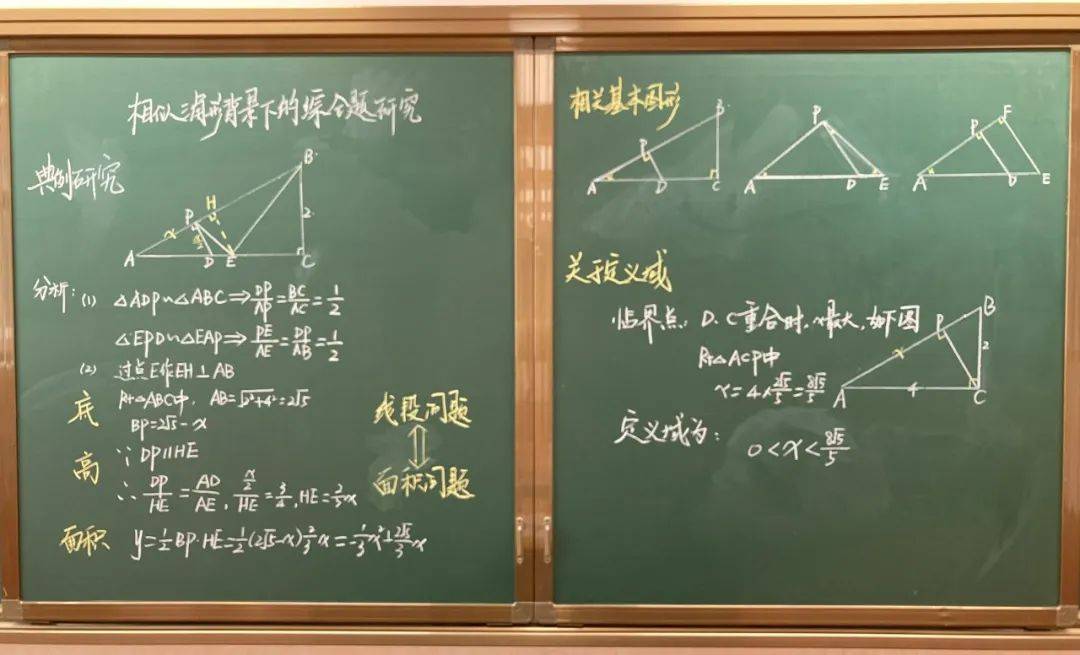 相似三角形背景下的综合题研究
典例研究
B
H
P
x
2
A D E C
分析: (1) △ADP∽△ABC⇒DP/AP=BC/AC=1/2
△EPD∽△EAP⇒PE/AE=DP/AB=1/2
(2) 过点E作EH⊥AB
底 Rt△ABC中, AB=√2²+4²=2√5
BP=2√5-x
高 ∵DP∥HE
∴DP/HE=AD/AE, x/2/HE=3/4, HE=2/3x
面积 y=1/2BP·HE=1/2(2√5-x)2/3x=-1/3x²+2√5/3x
线段问题
⇕
面积问题
相关基本图形
B
P
A D C
P
A D E
P F
A D E
关于定义域
临界点: D、C重合时, x最大, 如下图
Rt△ACP中
x=4×2√5/5=8√5/5
B
P
x
2
A 4 C
定义域为:
0<x<8√5/5